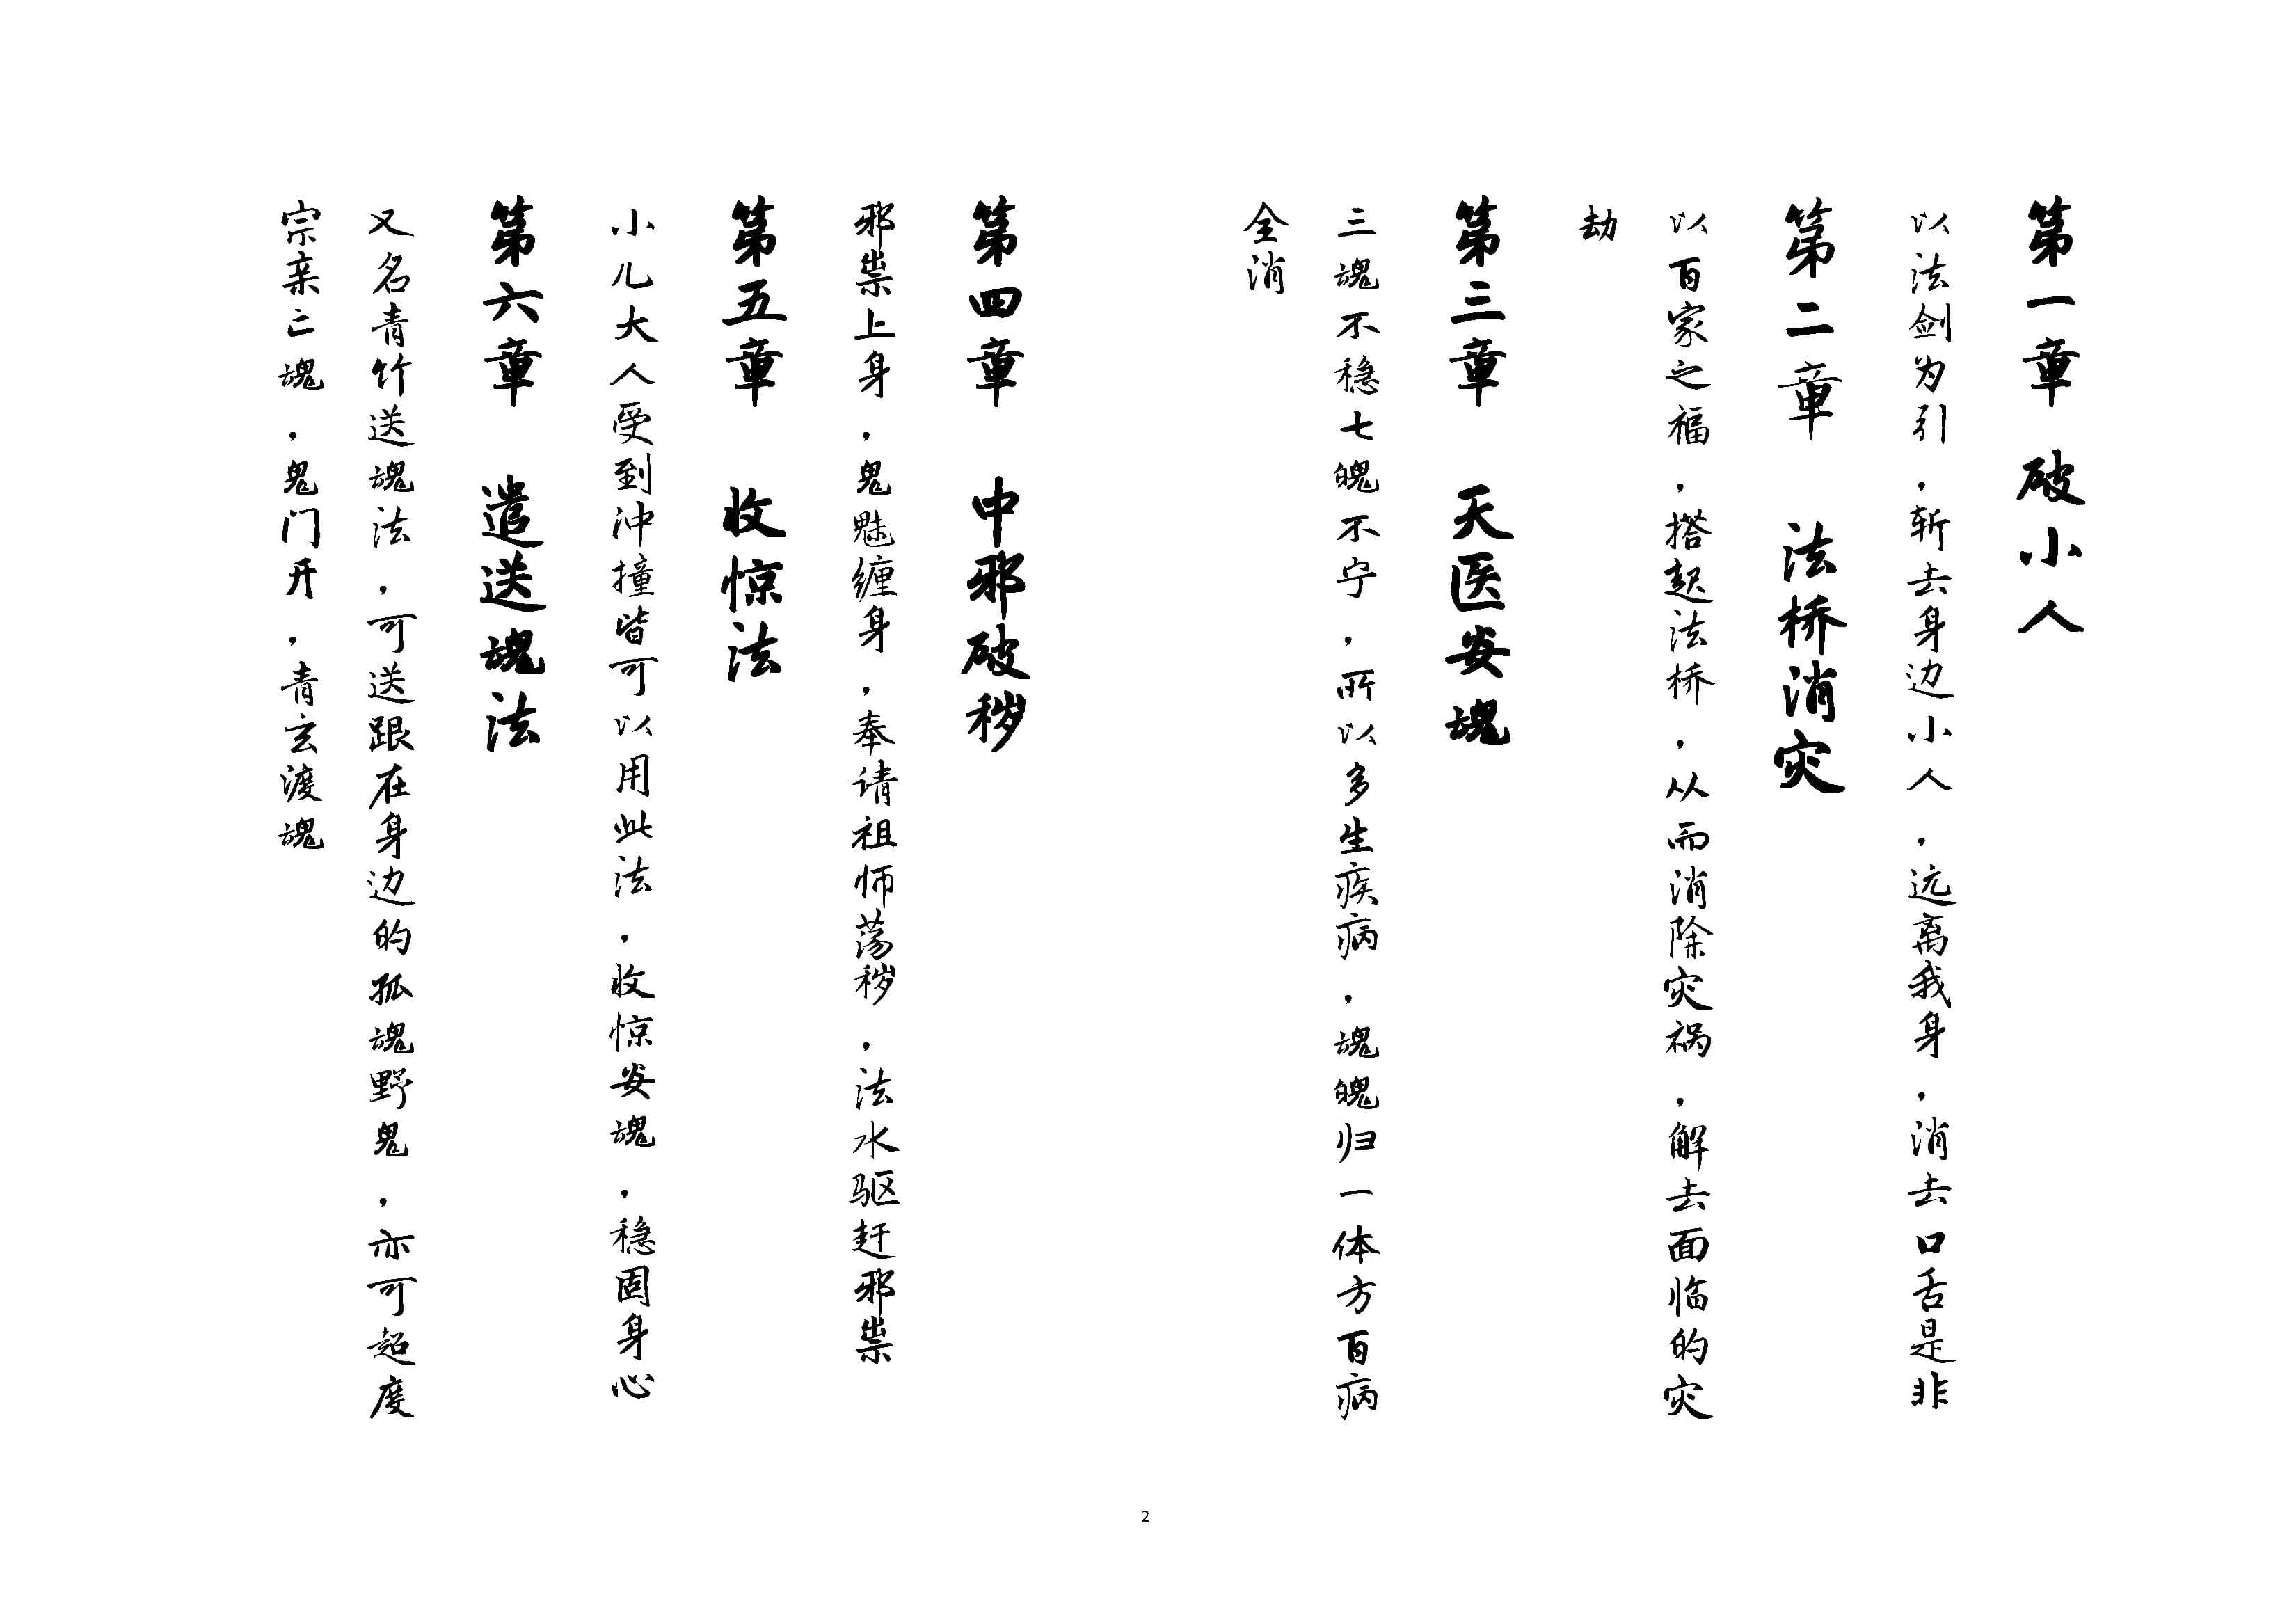 第一章 破小人
以法剑为引，斩去身边小人，远离我身，消去口舌是非
第二章 法桥消灾
以百家之福，搭起法桥，从而消除灾祸，解去面临的灾
劫
第三章 天医安魂
三魂不稳七魄不宁，所以多生疾病，魂魄归一体方百病
全消
第四章 中邪破秽
邪祟上身，鬼魅缠身，奉请祖师荡秽，法水驱赶邪祟
第五章 收惊法
小儿大人受到冲撞皆可以用此法，收惊安魂，稳固身心
第六章 遣送魂法
又名青竹送魂法，可送跟在身边的孤魂野鬼，亦可超度
宗亲亡魂，鬼门开，青玄渡魂
2